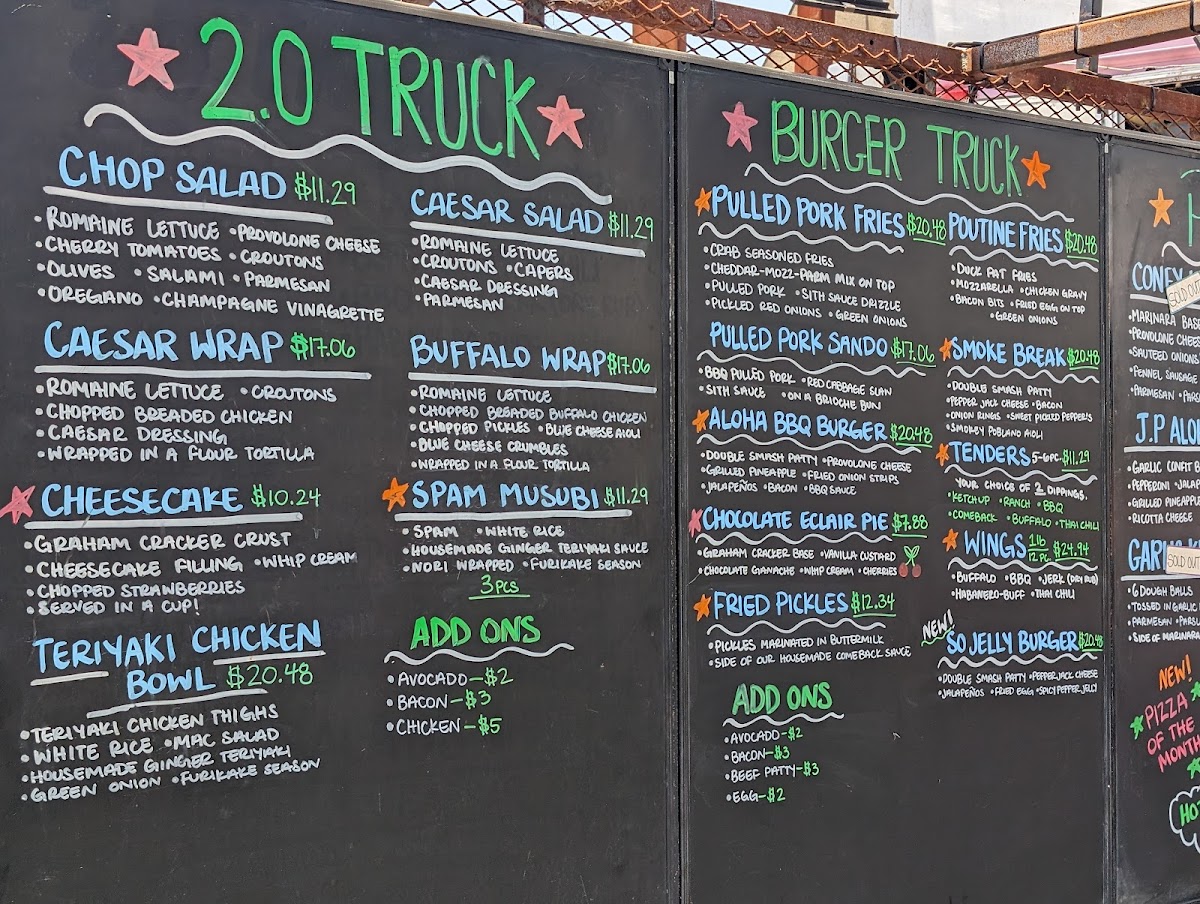 2.0 TRUCK
CHOP SALAD $11.29
•ROMAINE LETTUCE •PROVOLONE CHEESE
•CHERRY TOMATOES •CROUTONS
•OLIVES •SALAMI •PARMESAN
•OREGANO •CHAMPAGNE VINAGRETTE
CAESAR WRAP $17.06
•ROMAINE LETTUCE •CROUTONS
•CHOPPED BREADED CHICKEN
•CAESAR DRESSING
•WRAPPED IN A FLOUR TORTILLA
CHEESECAKE $10.24
•GRAHAM CRACKER CRUST
•CHEESECAKE FILLING •WHIP CREAM
•CHOPPED STRAWBERRIES
•SERVED IN A CUP!
TERIYAKI CHICKEN
BOWL $20.48
•TERIYAKI CHICKEN THIGHS
•WHITE RICE •MAC SALAD
•HOUSEMADE GINGER TERIYAKI
•GREEN ONION •FURIKAKE SEASON
CAESAR SALAD $11.29
•ROMAINE LETTUCE
•CROUTONS •CAPERS
•CAESAR DRESSING
•PARMESAN
BUFFALO WRAP $17.06
•ROMAINE LETTUCE
•CHOPPED BREADED BUFFALO CHICKEN
•CHOPPED PICKLES •BLUE CHEESE AIOLI
•BLUE CHEESE CRUMBLES
•WRAPPED IN A FLOUR TORTILLA
SPAM MUSUBI $11.29
•SPAM •WHITE RICE
•HOUSEMADE GINGER TERIYAKI SAUCE
•NORI WRAPPED •FURIKAKE SEASON
3 PCS
ADD ONS
•AVOCADO-$2
•BACON-$3
•CHICKEN-$5
BURGER TRUCK
PULLED PORK FRIES $20.48
•CRAB SEASONED FRIES
•CHEDDAR-MOZZ-PARM MIX ON TOP
•PULLED PORK •SITH SAUCE DRIZZLE
•PICKLED RED ONIONS •GREEN ONIONS
PULLED PORK SANDO $17.06
•BBQ PULLED PORK •RED CABBAGE SLAW
•SITH SAUCE •ON A BRIOCHE BUN
ALOHA BBQ BURGER $20.48
•DOUBLE SMASH PATTY •PROVOLONE CHEESE
•GRILLED PINEAPPLE •FRIED ONION STRIPS
•JALAPEÑOS •BACON •BBQ SAUCE
CHOCOLATE ECLAIR PIE $7.88
•GRAHAM CRACKER BASE •VANILLA CUSTARD
•CHOCOLATE GANACHE •WHIP CREAM •CHERRIES
FRIED PICKLES $12.34
•PICKLES MARINATED IN BUTTERMILK
•SIDE OF OUR HOUSEMADE COMEBACK SAUCE
ADD ONS
•AVOCADO-$2
•BACON-$3
•BEEF PATTY-$3
•EGG-$2
POUTINE FRIES $20.48
•DUCK FAT FRIES
•MOZZARELLA •CHICKEN GRAVY
•BACON BITS •FRIED EGG ON TOP
•GREEN ONIONS
SMOKE BREAK $20.48
•DOUBLE SMASH PATTY
•PEPPER JACK CHEESE •BACON
•ONION RINGS •SWEET PICKLED PEPPERS
•SMOKEY POBLANO AIOLI
TENDERS 5-6PC. $11.29
YOUR CHOICE OF 2 DIPPINGS.
•KETCHUP •RANCH •BBQ
•COMEBACK •BUFFALO •THAI CHILI
WINGS 1lb 12pc $24.94
•BUFFALO •BBQ •JERK (DRY RUB)
•HABANERO-BUFF •THAI CHILI
NEW!
SO JELLY BURGER $20.48
•DOUBLE SMASH PATTY •PEPPER JACK CHEESE
•JALAPEÑOS •FRIED EGG •SPICY PEPPER JELLY
CONEY
SOLD OUT
•MARINARA BASE
•PROVOLONE CHEES
•SAUTEED ONIONS
•FENNEL SAUSAGE
•PARMESAN
J.P ALO
•GARLIC CONFIT
•PEPPERONI
•GRILLED PINEAPPL
•RICOTTA CHEESE
GAR
SOLD OUT
•6 DOUGH BALLS
•TOSSED IN GARLIC
•PARMESAN
•SIDE OF MARINARA
NEW!
PIZZA
OF THE
MONTH
HO